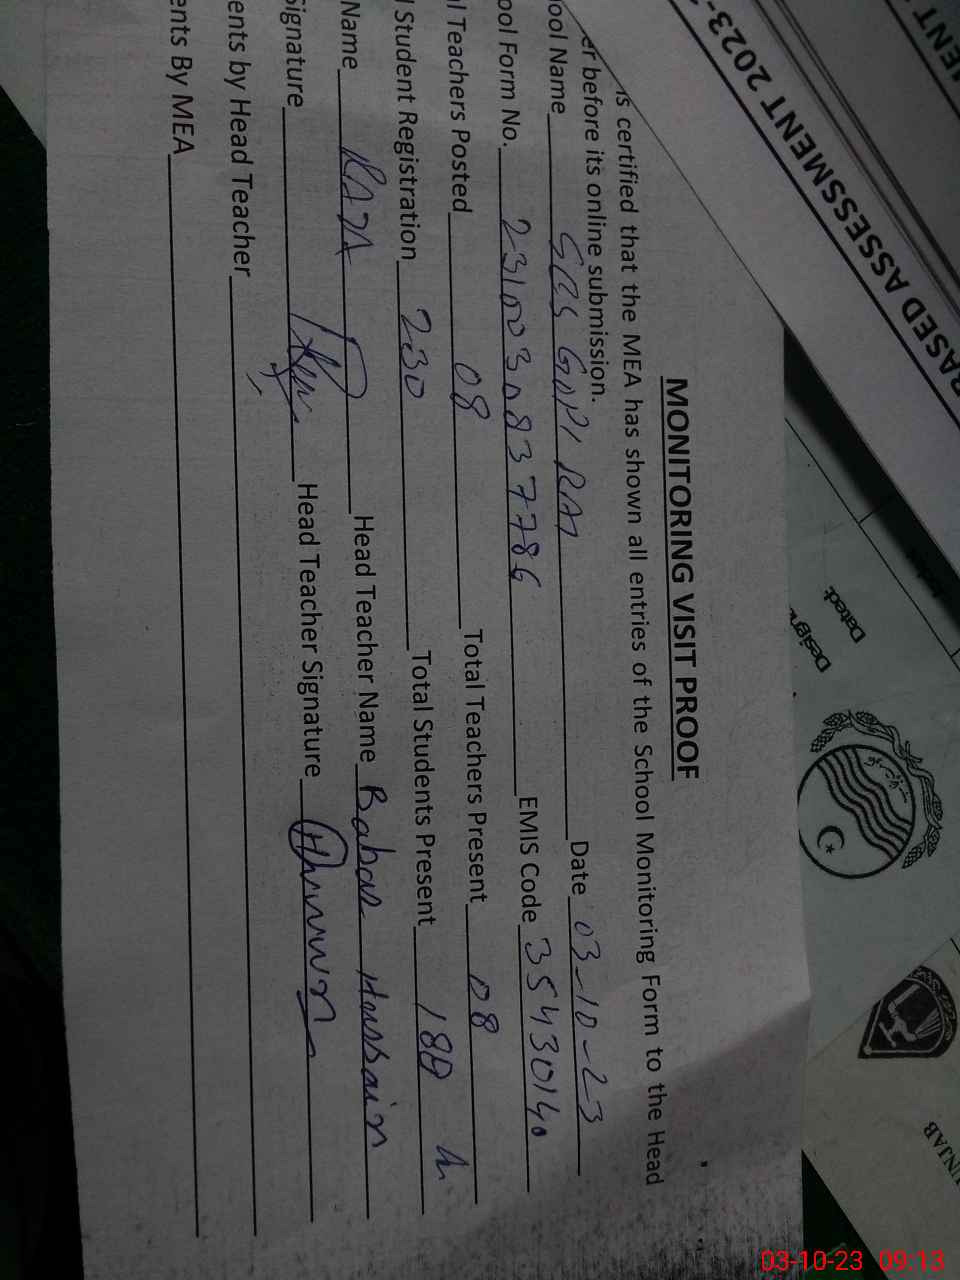 MENT
BASED ASSESSMENT 2023-
Design
Dated:
UNJAB
MONITORING VISIT PROOF
is certified that the MEA has shown all entries of the School Monitoring Form to the Head
er before its online submission.
ool Name GES GOPI RAI Date 03-10-23
ool Form No. 2310030837786 EMIS Code 35430140
l Teachers Posted 08 Total Teachers Present 08
l Student Registration 230 Total Students Present 180
Name RAZA Head Teacher Name Babar Hussain
Signature Head Teacher Signature
ents by Head Teacher
ents By MEA
03-10-23 09:13